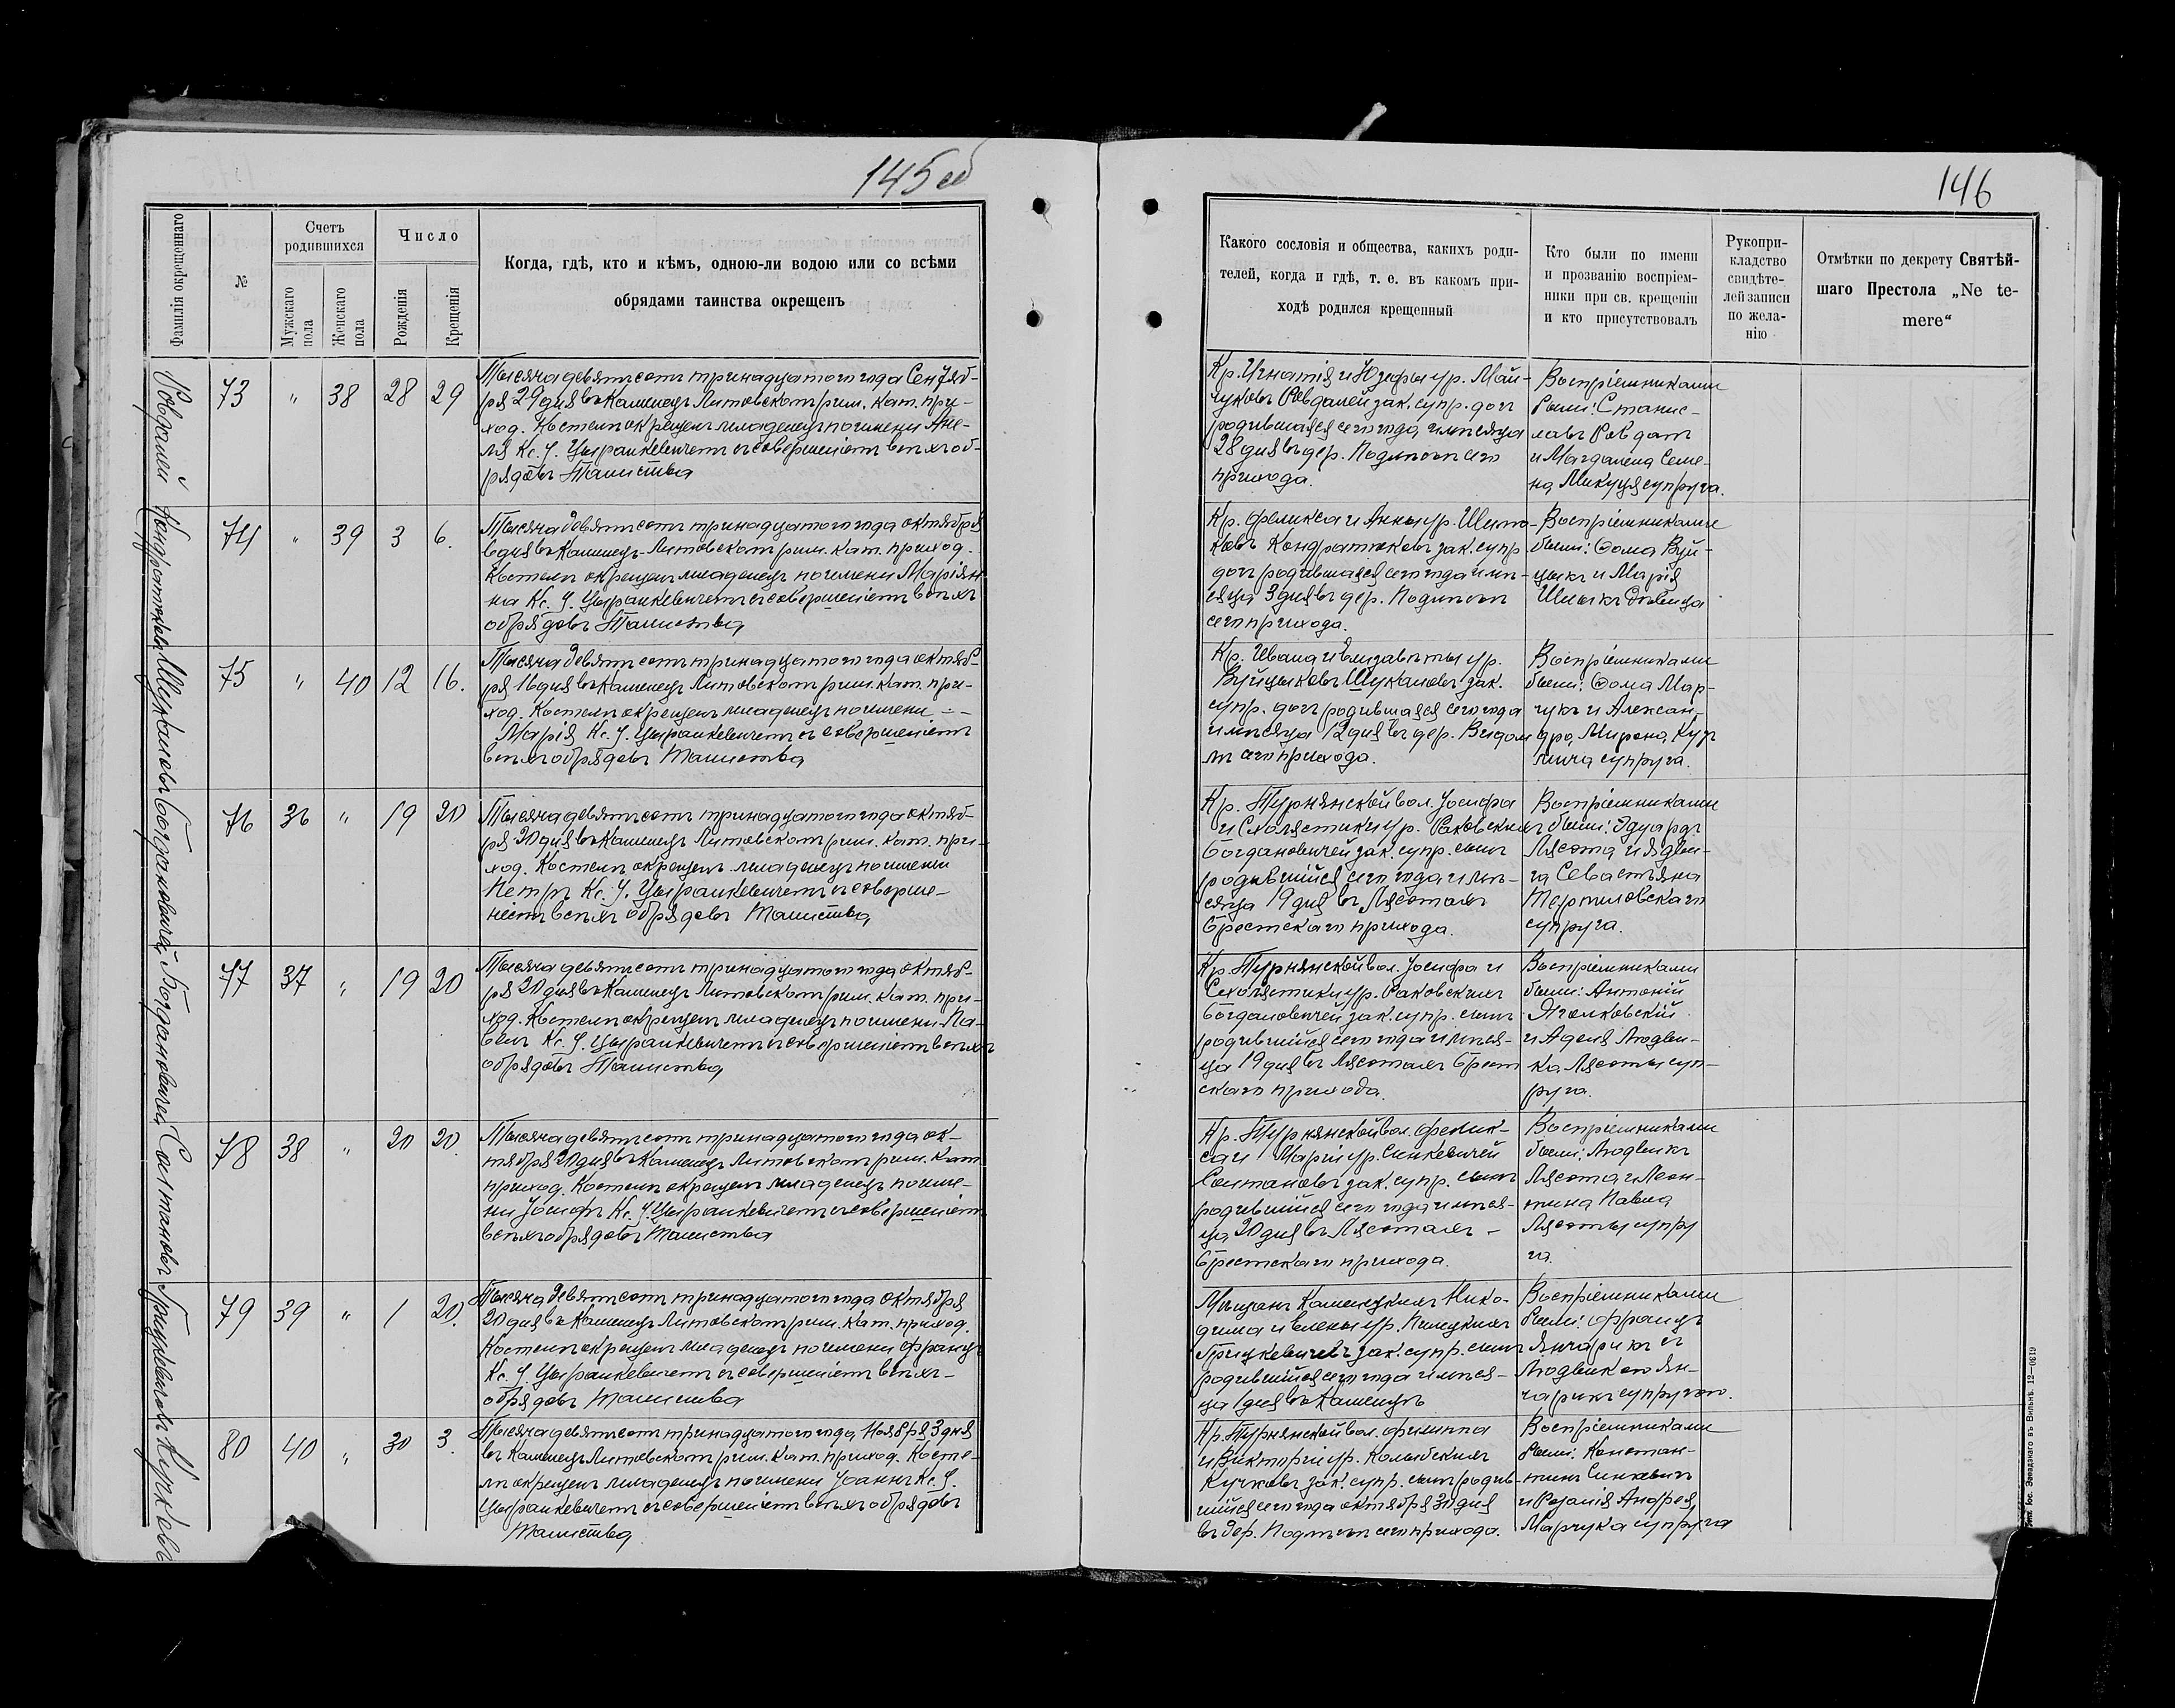 145 об
Фамилія окрещеннаго
№
Счетъ
родившихся
Мужскаго
пола
Женскаго
пола
Число
Рожденія
Крещенія
Когда, гдѣ, кто и кѣмъ, одною-ли водою или со всѣми
обрядами таинства окрещенъ
73 " 38 28 29
Тысяча девятьсотъ тринадцатого года Сентяб-
ря 29 дня въ Каменецъ Литовскомъ рим. кат. при-
ход. Костелѣ окрещенъ младенецъ по имени Ане-
ля Кс. У. Цыранкевичемъ съ совершеніемъ всѣхъ об-
рядовъ Таинства
Кондратюковъ
74 " 39 3 6.
Тысяча девятьсотъ тринадцатого года октября
6 дня въ Каменецъ-Литовскомъ рим. кат. приход.
Костелѣ окрещенъ младенецъ по имени Маріян-
на Кс. У. Цыранкевичемъ съ совершеніемъ всѣхъ
обрядовъ Таинства
Шукаловъ
75 " 40 12 16.
Тысяча девятьсотъ тринадцатого года октяб-
ря 16 дня въ Каменецъ Литовскомъ рим. кат. при-
ход. Костелѣ окрещенъ младенецъ по имени
Марія Кс. У. Цыранкевичемъ съ совершеніемъ
всѣхъ обрядовъ Таинства
Богдановичей
76 36 " 19 20
Тысяча девятьсотъ тринадцатого года октяб-
ря 20 дня въ Каменецъ Литовскомъ рим. кат. при-
ход. Костелѣ окрещенъ младенецъ по имени
Петръ Кс. У. Цыранкевичемъ съ соверше-
ніемъ всѣхъ обрядовъ Таинства
Богдановичей
77 37 " 19 20
Тысяча девятьсотъ тринадцатого года октяб-
ря 20 дня въ Каменецъ Литовскомъ рим. кат. при-
ход. Костелѣ окрещенъ младенецъ по имени Па-
велъ Кс. У. Цыранкевичемъ съ совершеніемъ всѣхъ
обрядовъ Таинства
Солтановъ
78 38 " 20 20.
Тысяча девятьсотъ тринадцатого года ок-
тября 20 дня въ Каменецъ Литовскомъ рим. кат.
приход. Костелѣ окрещенъ младенецъ по име-
ни Іосифъ Кс. У. Цыранкевичемъ съ совершеніемъ
всѣхъ обрядовъ Таинства
Грицкевичевъ
79 39 " 1 20.
Тысяча девятьсотъ тринадцатого года октября
20 дня въ Каменецъ Литовскомъ рим. кат. приход.
Костелѣ окрещенъ младенецъ по имени Францъ
Кс. У. Цыранкевичемъ съ совершеніемъ всѣхъ
обрядовъ Таинства
Кучковъ
80 40 " 30 3.
Тысяча девятьсотъ тринадцатого года, Ноября 3 дня
въ Каменецъ Литовскомъ рим. кат. приход. Косте-
лѣ окрещенъ младенецъ по имени Іоаннъ Кс. У.
Цыранкевичемъ съ совершеніемъ всѣхъ обрядовъ
Таинства
146
Какого сословія и общества, какихъ роди-
телей, когда и гдѣ, т. е. въ какомъ при-
ходѣ родился крещенный
Кто были по имени
и прозванію воспріем-
ники при св. крещеніи
и кто присутствовалъ
Рукопри-
кладство
свидѣте-
лей записи
по жела-
нію
Отмѣтки по декрету Святѣй-
шаго Престола „Ne te-
mere“
Кр. Игнатія и Юзефы ур. Май-
чуковъ зак. супр. дочь
родившаяся сего года и мѣсяца
28 дня въ дер. сего
прихода.
Воспріемниками
были: Станис-
лавъ
и Магдалена Семе-
на Микуця супруга.
Кр. Феликса и Анны ур.
Кондратюковъ зак. супр.
дочь родившаяся сего года и мѣ-
сяца 3 дня въ дер.
сего прихода.
Воспріемниками
были: Ѳома Вуй-
цикъ и Марія
дѣвица
Кр. Ивана и Елизаветы ур.
Вуйциковъ Шукаловъ зак.
супр. дочь родившаяся сего года
и мѣсяца 12 дня въ дер. Видом-
лѣ сего прихода.
Воспріемниками
были: Ѳома Мар-
чукъ и Алексан-
дра, Мирона
супруга.
Кр. Турнянской вол. Іосифа
и Схолястики ур. Раковскихъ
Богдановичей зак. супр. сынъ
родившійся сего года и мѣ-
сяца 19 дня въ Лясотахъ
Брестскаго прихода.
Воспріемниками
были: Эдуардъ
Лясота и Ядви-
га Севастьяна
супруга.
Кр. Турнянской вол. Іосифа и
Схолястики ур. Раковскихъ
Богдановичей зак. супр. сынъ
родившійся сего года и мѣся-
ца 19 дня въ Лясотахъ Брест-
скаго прихода.
Воспріемниками
были: Антоній
и Аделя Людви-
ка Лясоты суп-
руга.
Кр. Турнянской вол. Фелик-
са и Маріи ур. Синкевичей
Солтановъ зак. супр. сынъ
родившійся сего года и мѣся-
ца 20 дня въ Лясотахъ
Брестскаго прихода.
Воспріемниками
были: Людвикъ
Лясота и Леон-
тина Павла
Лясоты супру
га.
Мѣщанъ Каменецкихъ Нико-
дима и Елены ур. Пилецкихъ
Грицкевичевъ зак. супр. сынъ
родившійся сего года и мѣся-
ца 1 дня въ Каменецъ
Воспріемниками
были: Францъ
Янчарикъ съ
Людвикою Ян-
чарикъ супругою.
Кр. Турнянской вол. Филиппа
и Викторіи ур.
Кучковъ зак. супр. сынъ родив-
шійся сего года октября 30 дня
въ дер. сего прихода.
Воспріемниками
были: Констан-
тинъ Синкевичъ
и Розалія Андрея
Марчука супруга